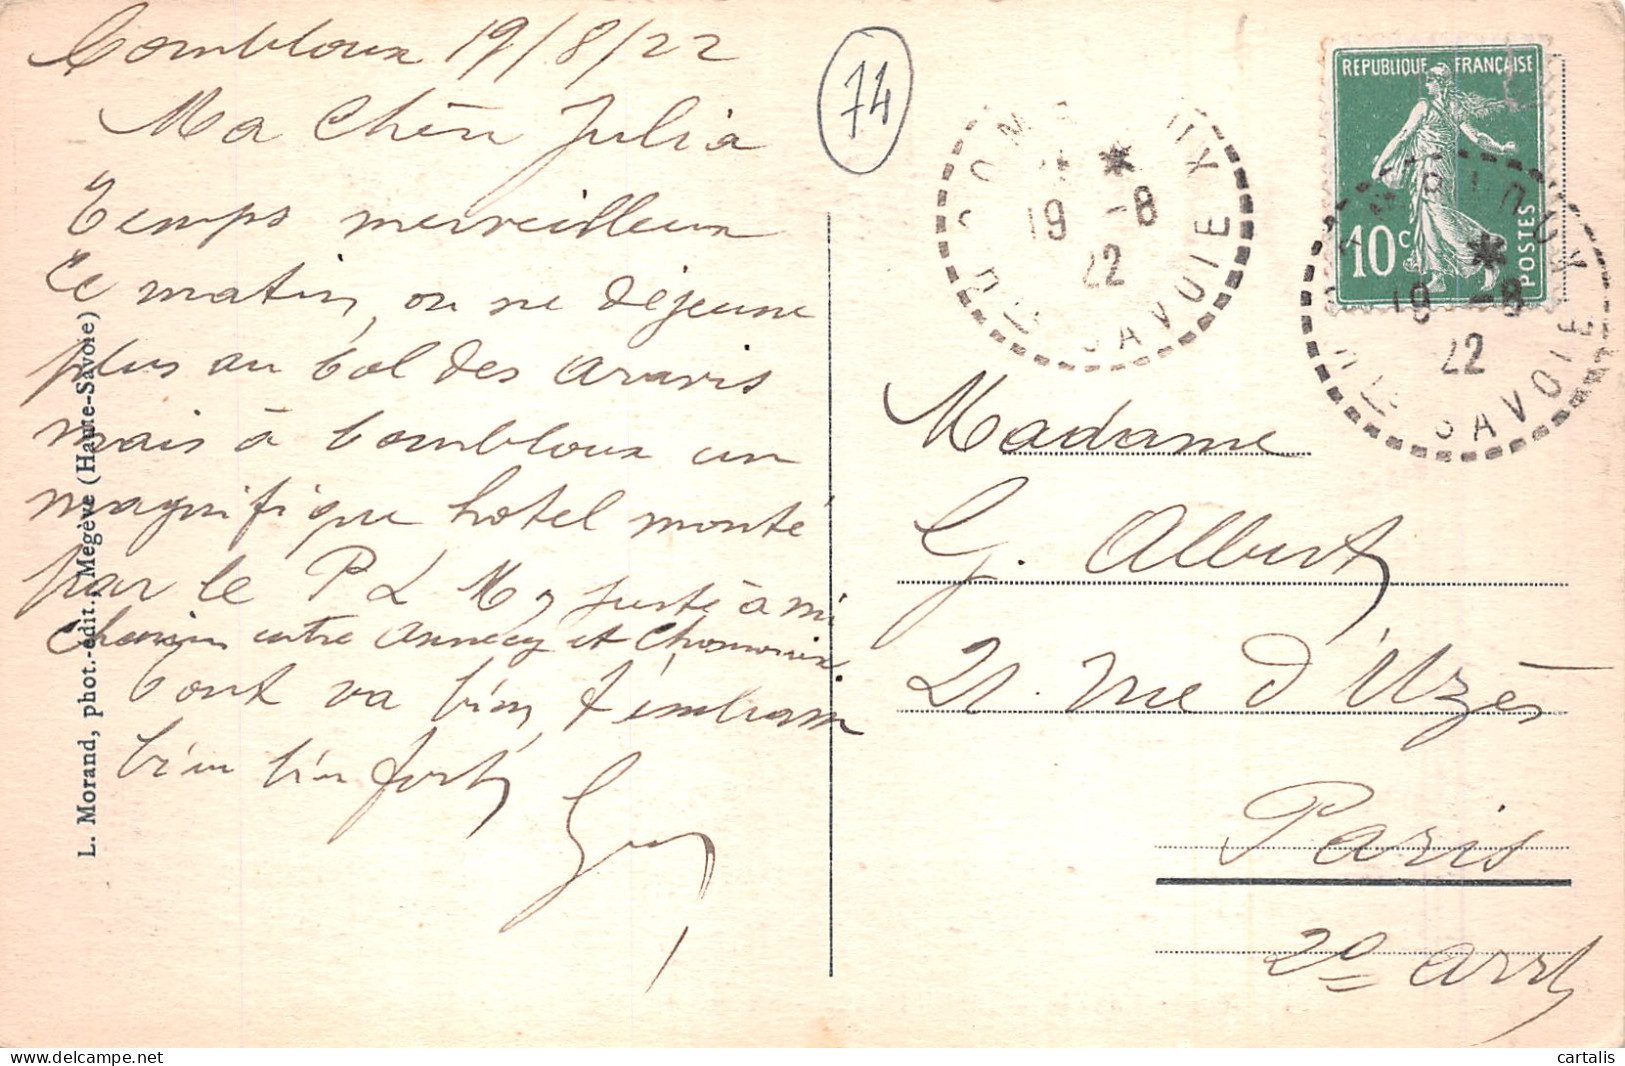 Combloux 19/8/22
Ma Chère Julia
Temps merveilleux
Ce matin, on ne déjeune
plus au Col des Aravis
mais à Combloux un
magnifique hotel monté
par le P L M, juste à mi
Chemin entre Annecy et Chamonix
Tout va bien, t'embrasse
bien bien fort,
Guy
74
L. Morand, phot.-édit., Megève (Haute-Savoie)
COMBLOUX
19 -8
22
HTE SAVOIE
RÉPUBLIQUE FRANÇAISE
10c
POSTES
COMBLOUX
19 -8
22
HTE SAVOIE
Madame
G. Albert,
21. rue d'Uzès
Paris
2e arrt
delcampe.net
cartalis